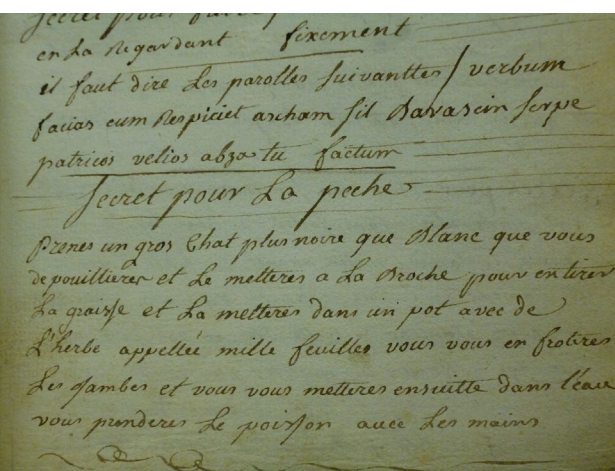 Secret pour
en La Regardant fixement
il faut dire Les parolles suivanttes / verbum
facias eum Respiciet ascham sit Barascin serpe
patricos velios absa tu factum
Secret pour La peche
Prenes un gros Chat plus noire que Blanc que vous
depouillieres et Le metteres a La Broche pour en tirer
La graisse et La metteres dans un pot avec de
L'herbe appellée mille feuilles vous vous en frotires
Les Jambes et vous vous metteres ensuitte dans l'eau
vous prenderes Le poisson avec Les mains